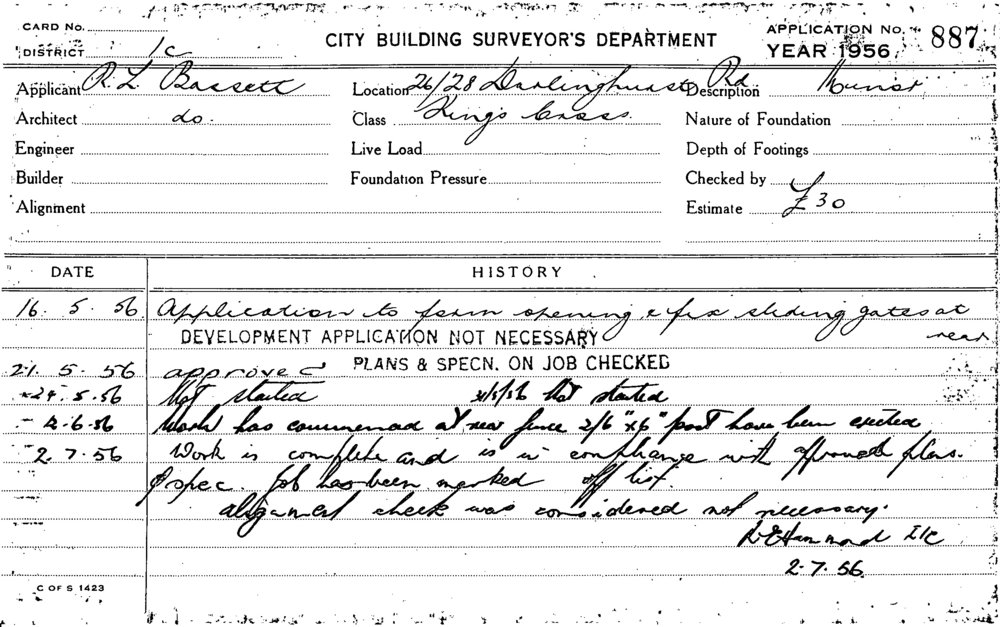 CARD No.
DISTRICT 1c
CITY BUILDING SURVEYOR'S DEPARTMENT
APPLICATION No. 887
YEAR 1956
Applicant R. L. Bassett
Location 26/28 Darlinghurst Rd
Description Minor
Architect do.
Class Kings Cross.
Nature of Foundation
Engineer
Live Load
Depth of Footings
Builder
Foundation Pressure
Checked by
Alignment
Estimate £30
DATE
HISTORY
16. 5. 56. Application to form opening & fix sliding gates at rear
DEVELOPMENT APPLICATION NOT NECESSARY
PLANS & SPECN. ON JOB CHECKED
21. 5. 56 approved
24. 5. 56 Not started 31/5/56 Not started
6. 56 Work has commenced at rear fence 2/6"x6" post have been erected
2. 7. 56 Work is complete and is in compliance with approved plans.
& spec. Job has been marked off list.
alignment check was considered not necessary.
Hammond I/C
2. 7. 56.
C OF S 1423